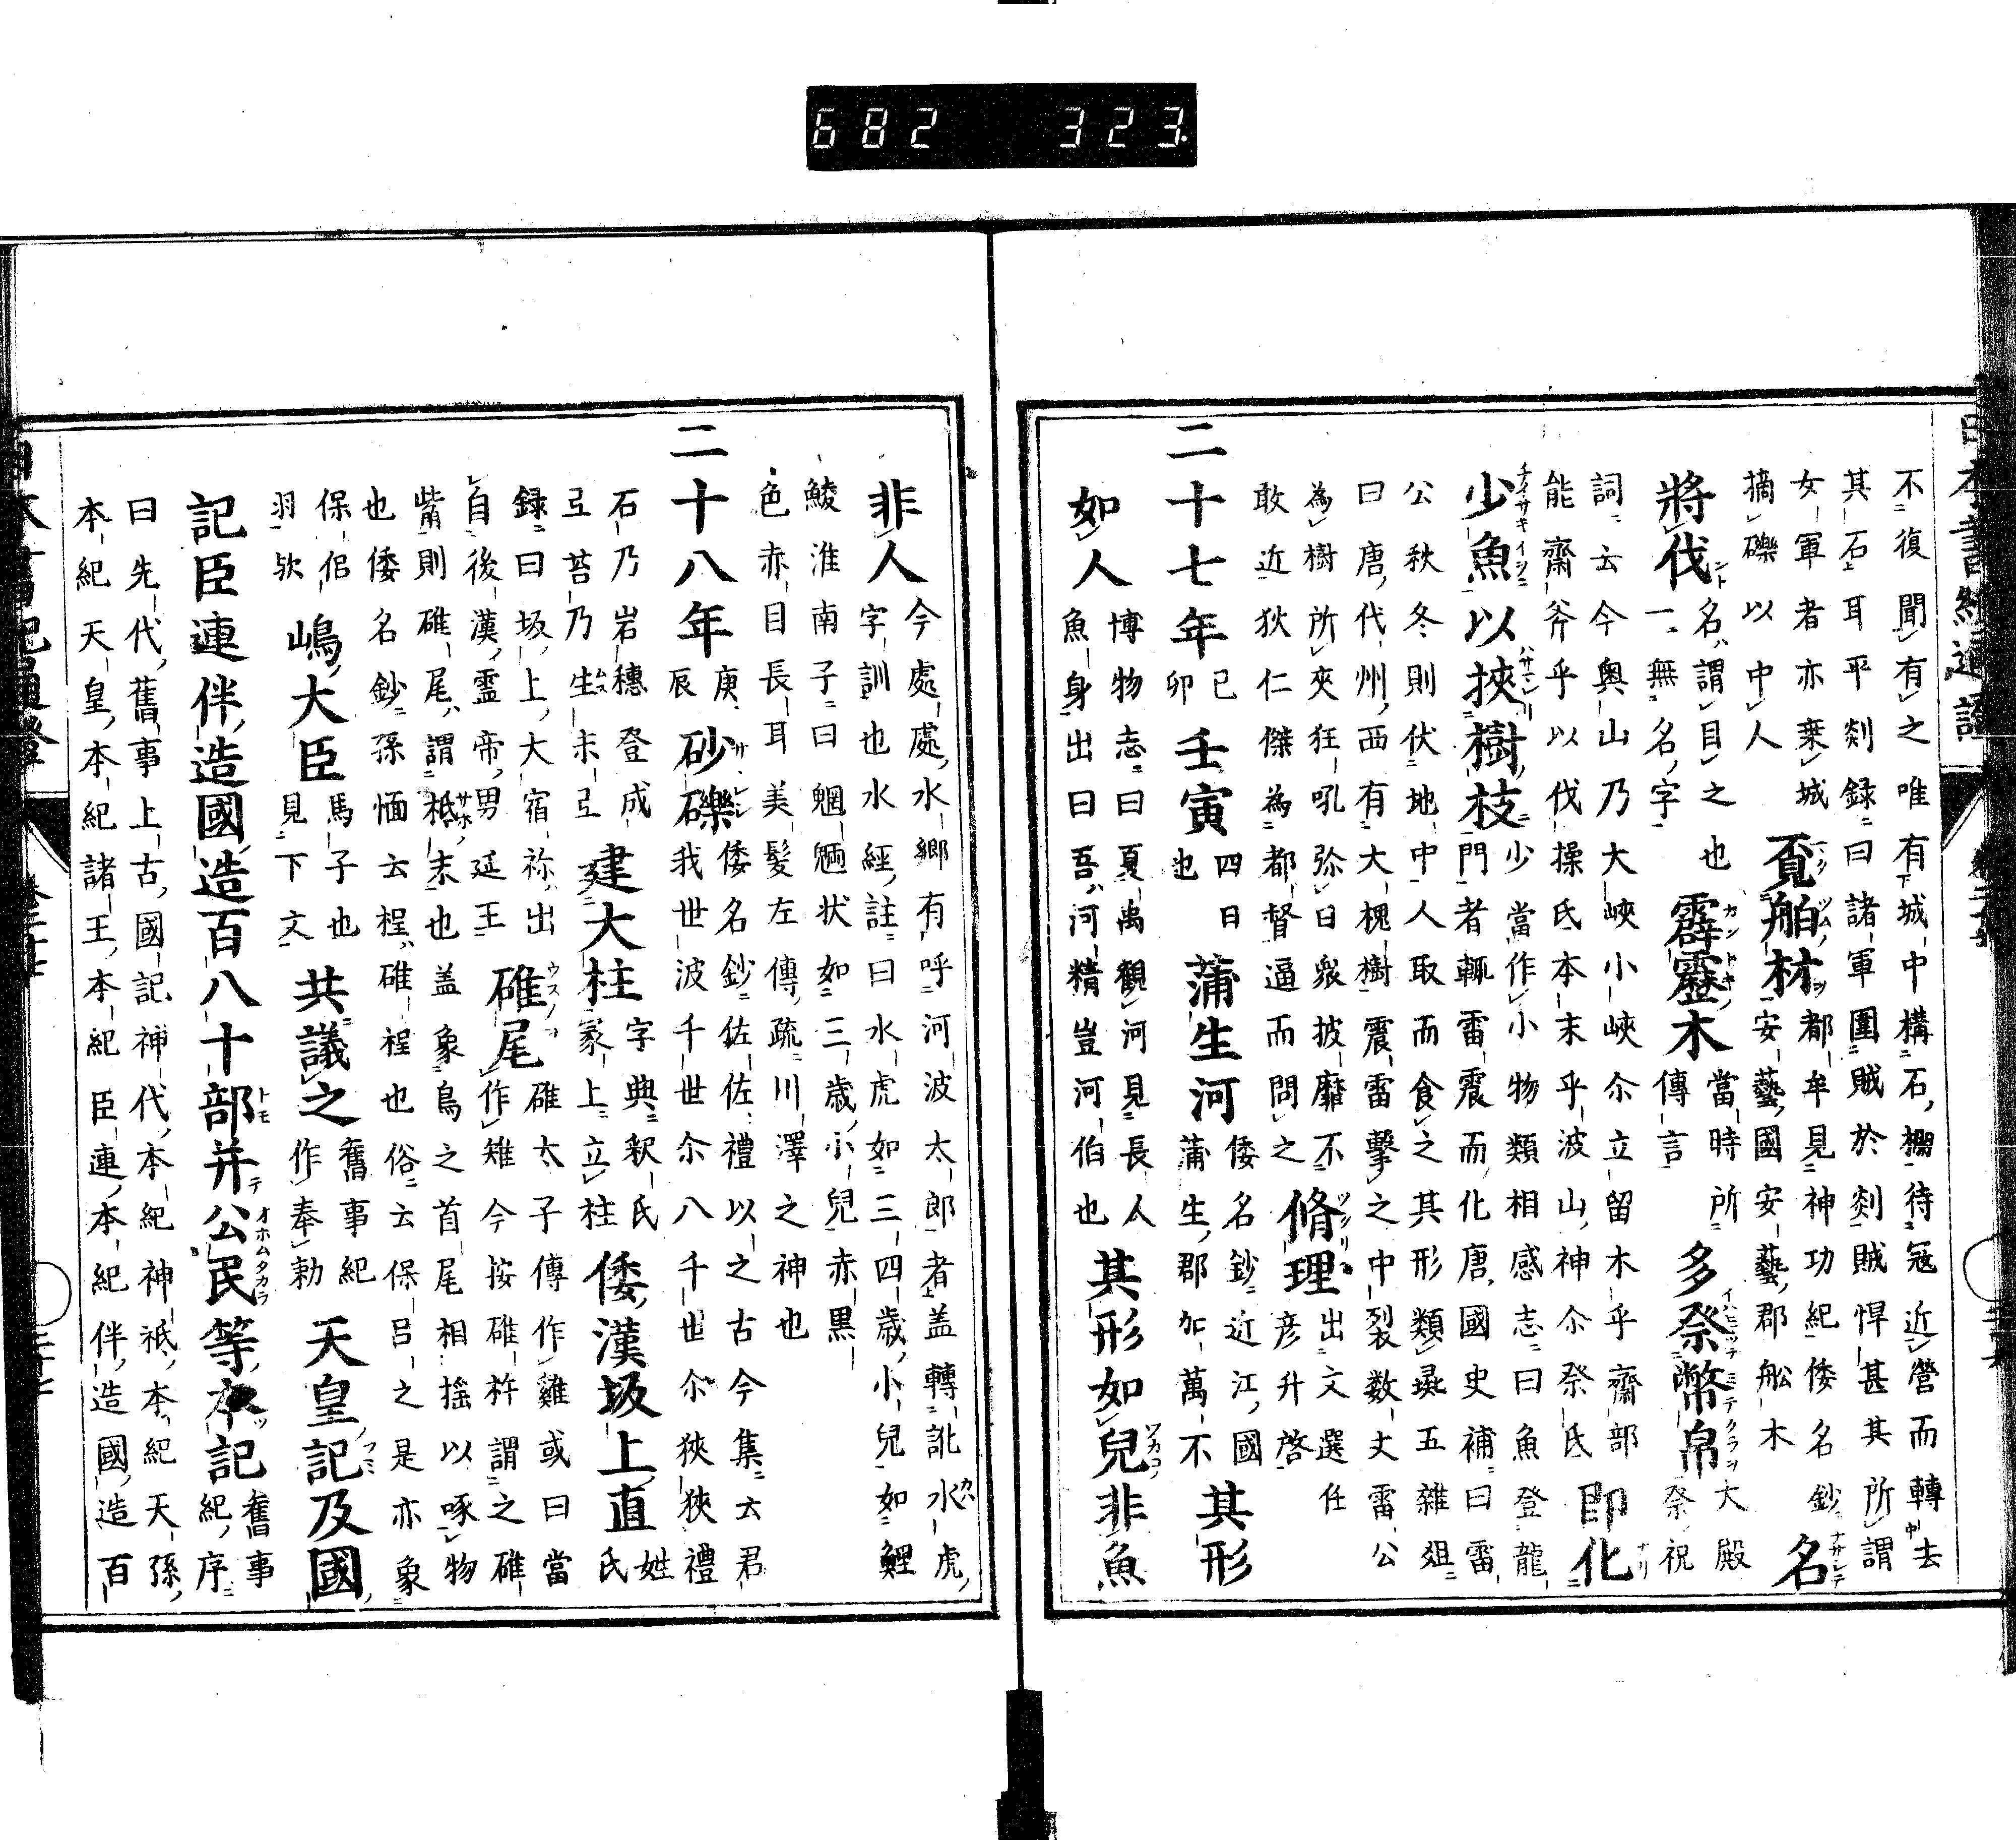 682 323
日本書紀通證
不復聞有之唯有城中構石棚待冦近營而轉去
其石耳平剡録曰諸軍圍賊於剡賊悍甚其所謂
女軍者亦乗城
摘礫以中人
覓舶材
都牟見神功紀倭名鈔
安藝國安藝郡舩木
名
將伐
名謂目之也
一無名字
霹靂木
當時所
傳言
多祭幣帛
大殿
祭祝
詞云今奥山乃大峽小峽尒立留木乎齋部
能齋斧乎以伐操氏本末乎波山神尒祭氏
即化
少魚以挾樹枝
少當作小物類相感志曰魚登龍
門者輙雷震而化唐國史補曰雷
公秋冬則伏地中人取而食之其形類彘五雜俎
曰唐代州西有大槐樹震雷擊之中裂数丈雷公
為樹所夾狂吼弥日衆披靡不
敢近狄仁傑為都督逼而問之
脩理
出文選任
彦升啓
二十七年
己
卯
壬寅
四日
也
蒲生河
倭名鈔近江國
蒲生郡加萬不
其形
如人
博物志曰夏禹觀河見長人
魚身出曰吾河精豈河伯也
其形如兒非魚
非人
今處處水郷有呼河波太郎者盖轉訛水虎
字訓也水經註曰水虎如三四歳小兒如鯉
鯪淮南子曰魍魎状如三歳小兒赤黒
色赤目長耳美髪左傳疏川澤之神也
二十八年
庚
辰
砂礫
倭名鈔佐佐禮以之古今集云君
我世波千世尒八千世尒狹狹禮
石乃岩穗登成
弖苔乃生末弖
建大柱
字典釈氏
冢上立柱
倭漢坂上直
姓
氏
録曰坂上大宿祢出
自後漢靈帝男延王
碓尾
碓太子傳作雞或曰當
作雉今按碓杵謂之碓
觜則碓尾謂祗末也盖象鳥之首尾相搖以啄物
也倭名鈔孫愐云桯碓桯也俗云保呂之是亦象
保侶
羽欤
嶋大臣
馬子也
見下文
共議之
舊事紀
作奉勅
天皇記及國
記臣連伴造國造百八十部并公民等本記
舊事
紀序
曰先代舊事上古國記神代本紀神祇本紀天孫
本紀天皇本紀諸王本紀臣連本紀伴造國造百